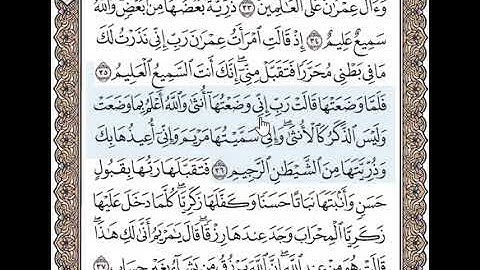 وَءَالَ عِمۡرَٰنَ عَلَى ٱلۡعَٰلَمِينَ ٣٣ ذُرِّيَّةَۢ بَعۡضُهَا مِنۢ بَعۡضٖۗ وَٱللَّهُ
سَمِيعٌ عَلِيمٌ ٣٤ إِذۡ قَالَتِ ٱمۡرَأَتُ عِمۡرَٰنَ رَبِّ إِنِّي نَذَرۡتُ لَكَ
مَا فِي بَطۡنِي مُحَرَّرٗا فَتَقَبَّلۡ مِنِّيٓۖ إِنَّكَ أَنتَ ٱلسَّمِيعُ ٱلۡعَلِيمُ ٣٥
فَلَمَّا وَضَعَتۡهَا قَالَتۡ رَبِّ إِنِّي وَضَعۡتُهَآ أُنثَىٰ وَٱللَّهُ أَعۡلَمُ بِمَا وَضَعَتۡ
وَلَيۡسَ ٱلذَّكَرُ كَٱلۡأُنثَىٰۖ وَإِنِّي سَمَّيۡتُهَا مَرۡيَمَ وَإِنِّيٓ أُعِيذُهَا بِكَ
وَذُرِّيَّتَهَا مِنَ ٱلشَّيۡطَٰنِ ٱلرَّجِيمِ ٣٦ فَتَقَبَّلَهَا رَبُّهَا بِقَبُولٍ
حَسَنٖ وَأَنۢبَتَهَا نَبَاتًا حَسَنٗا وَكَفَّلَهَا زَكَرِيَّاۖ كُلَّمَا دَخَلَ عَلَيۡهَا
زَكَرِيَّا ٱلۡمِحۡرَابَ وَجَدَ عِندَهَا رِزۡقٗاۖ قَالَ يَٰمَرۡيَمُ أَنَّىٰ لَكِ هَٰذَاۖ
قَالَتۡ هُوَ مِنۡ عِندِ ٱللَّهِۖ إِنَّ ٱللَّهَ يَرۡزُقُ مَن يَشَآءُ بِغَيۡرِ حِسَابٍ ٣٧